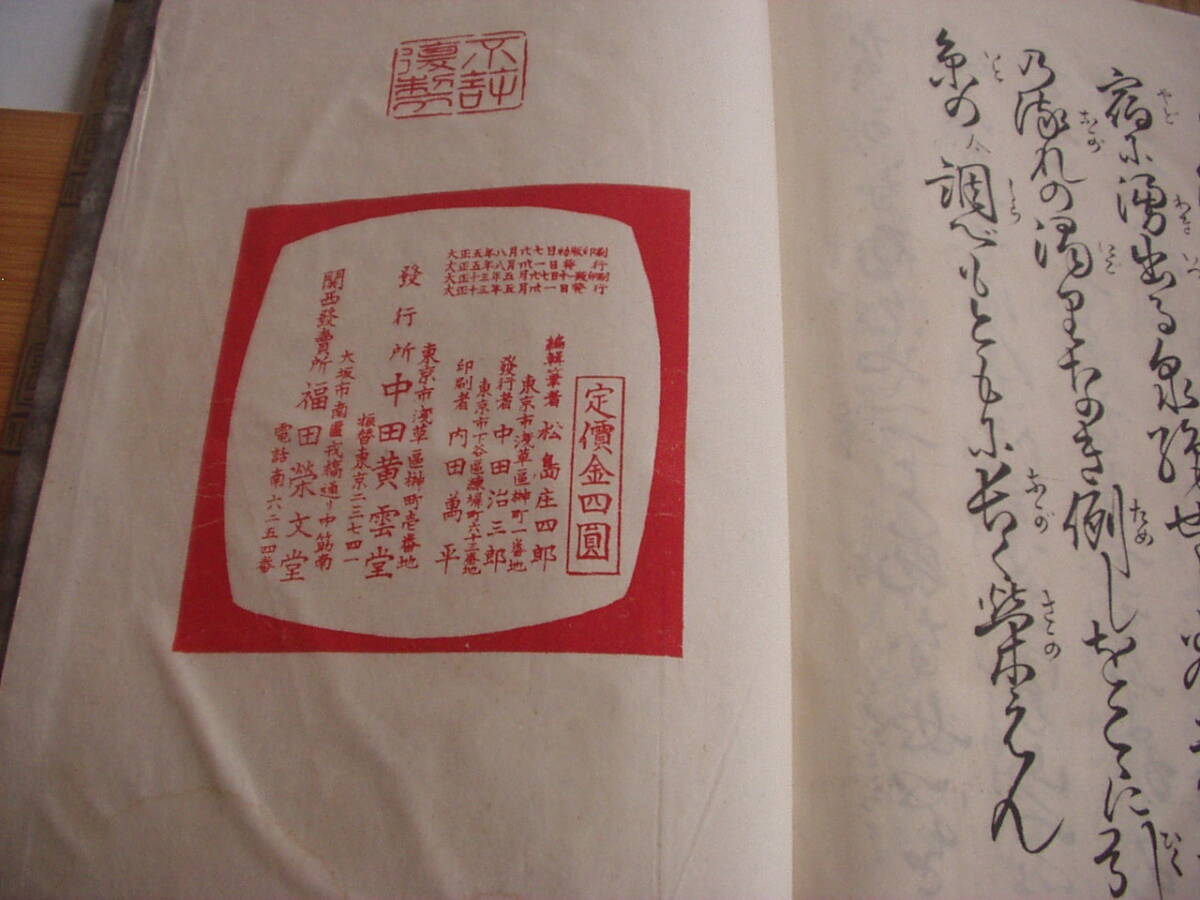 宿に湧出る泉
の流れの濁りなき例しをこゝに引
糸の調べもともに長く栄えん
不許
複製
大正五年八月廿七日初版印刷
大正五年八月卅一日發行
大正十三年五月廿七日十一版印刷
大正十三年五月卅一日發行
定價金四圓
編輯筆者 松島庄四郎
東京市淺草區榊町一番地
發行者 中田治三郎
東京市下谷區練塀町六十三番地
印刷者 内田萬平
東京市淺草區榊町壱番地
發行所 中田黄雲堂
振替東京二三七四一
大坂市南區戎橋通り中筋南
關西發賣所 福田榮文堂
電話南六二五四番